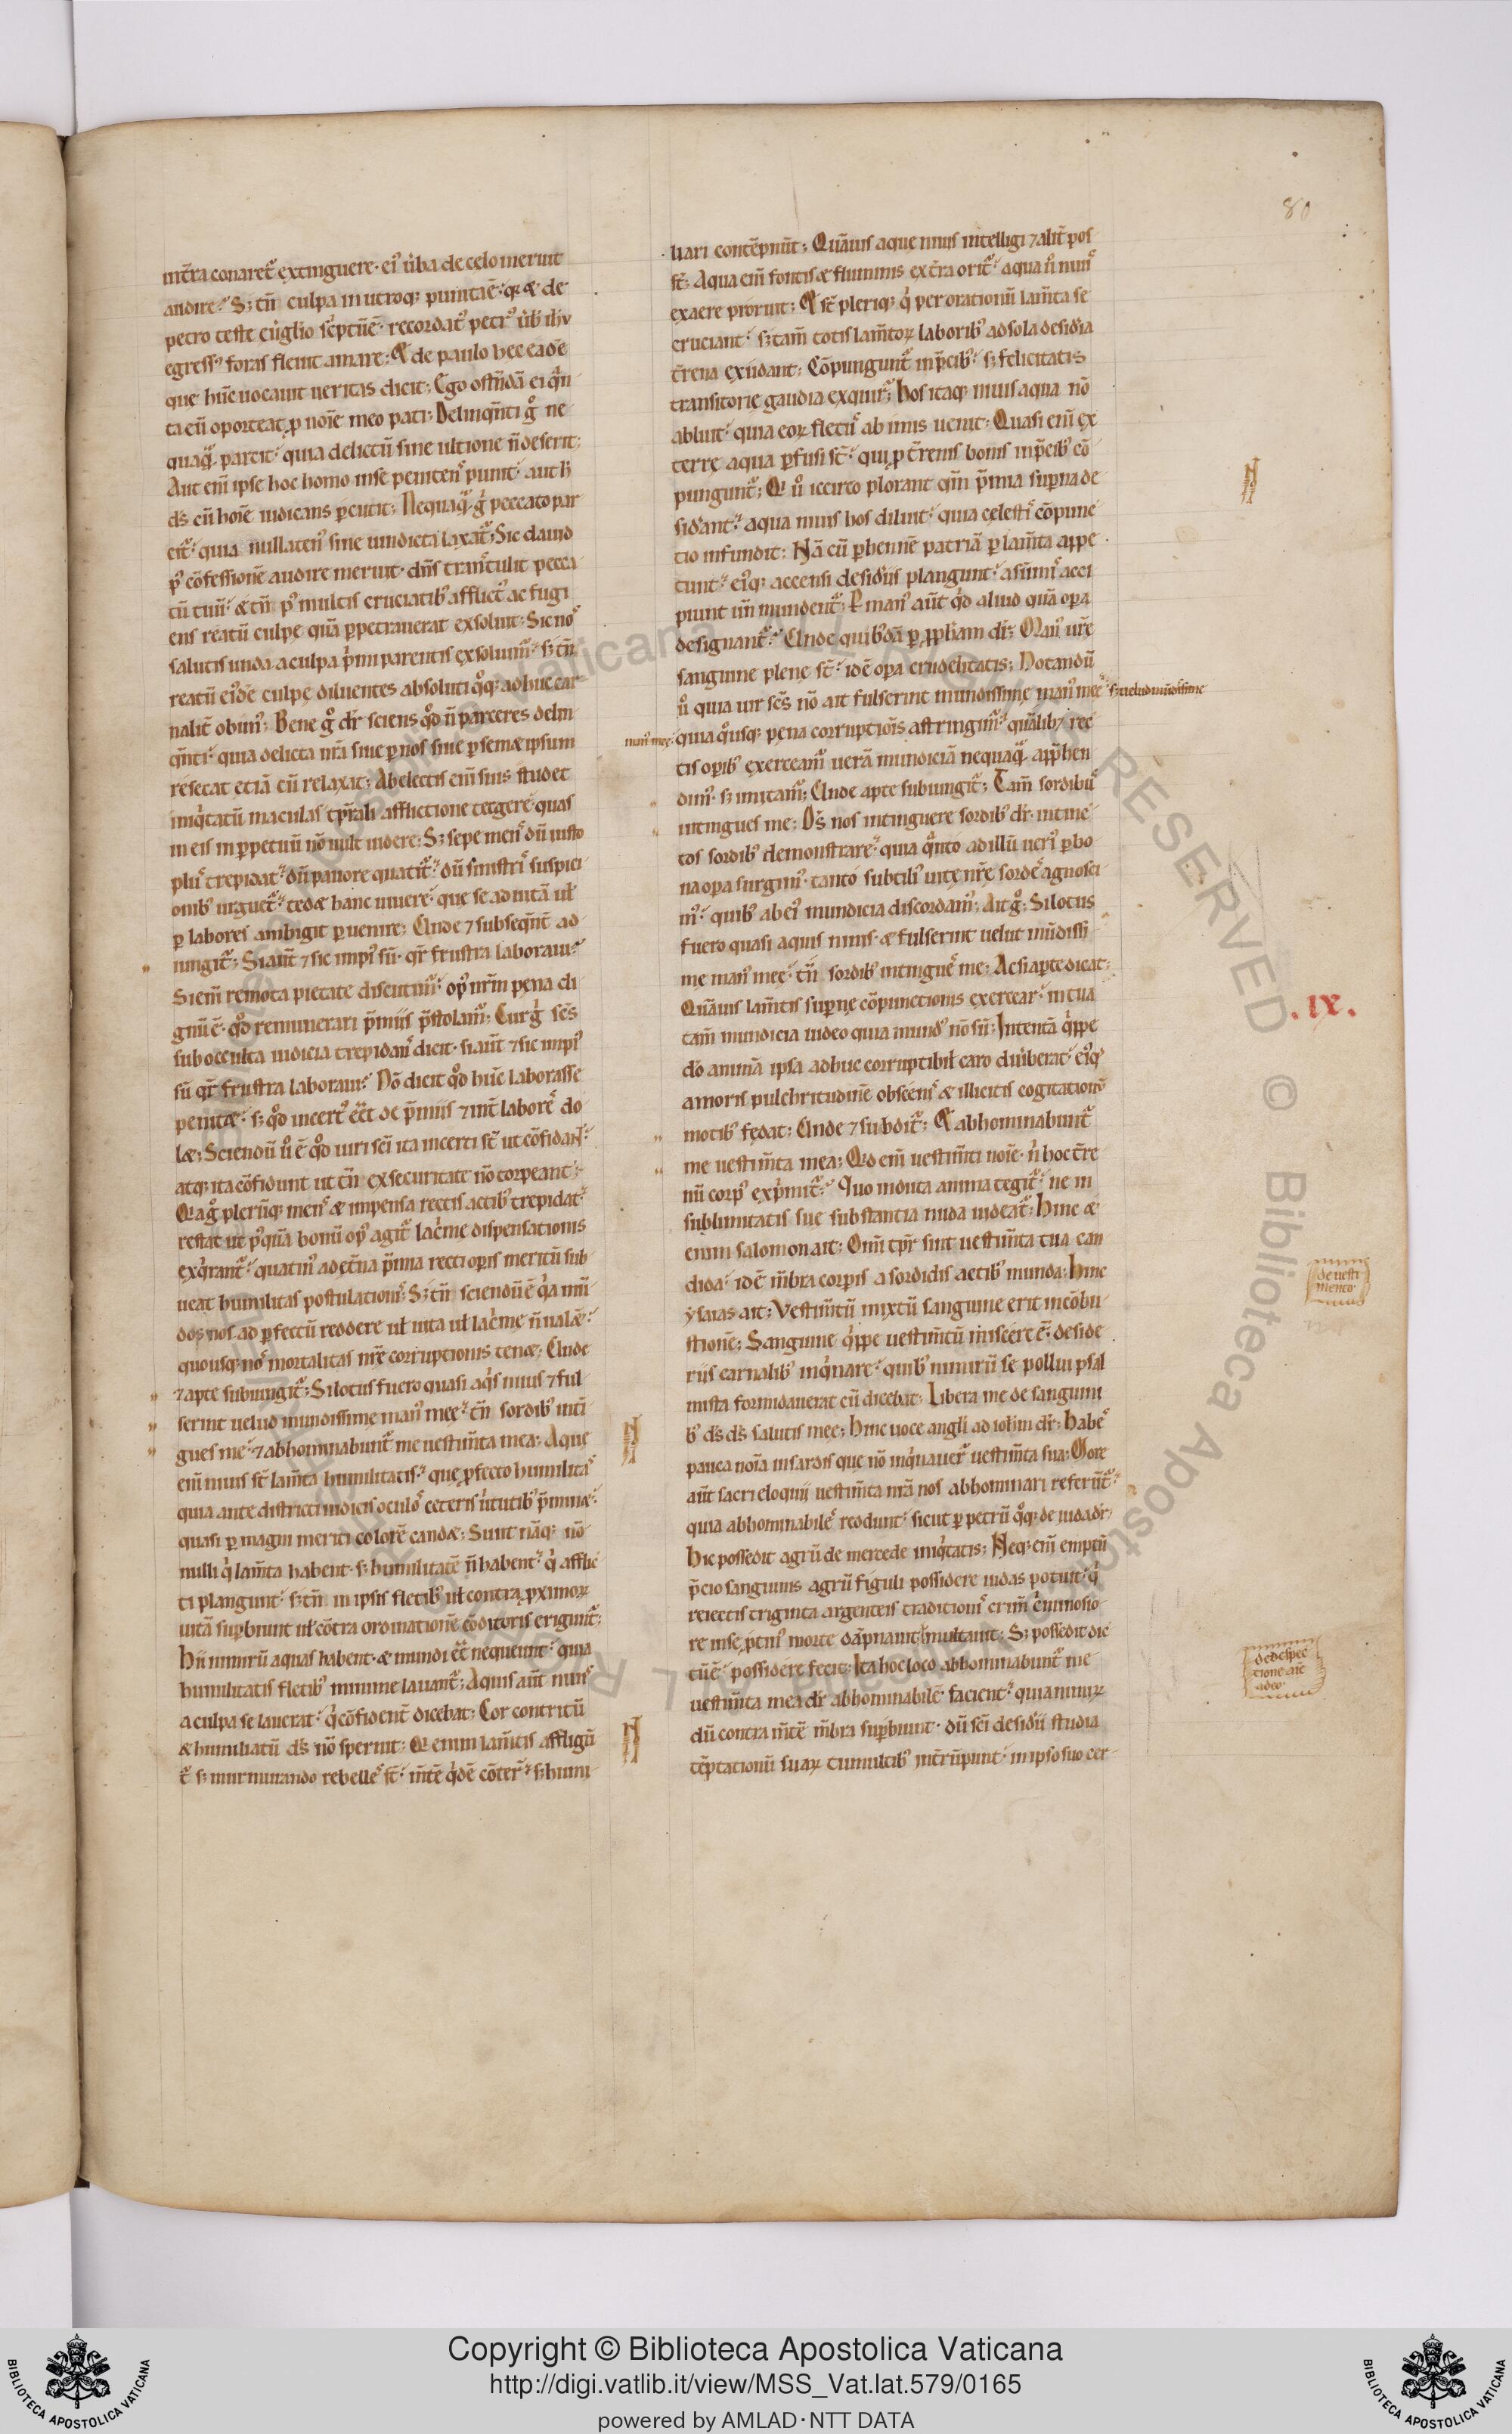 80
int̄ra conaret᷑ extinguere· eiꝰ ũba de celo meruit
audire᷑ Sꝫ tn̄ culpa in utroqꝫ punita ē· qꝛ & de
petro teste eũglio sc̓ptũ ē· recordatꝰ petrꝰ ũbi ihu
egressꝰ foras fleuit amare; Et de paulo hec eadē
que hũc uocauit ueritas dicit; Ego ostñdā ei q̃n
ta eũ oporteat ꝓ noīe meo pati; Delinqñti g̊ ne
quaq̃ parcit᷑ quia delictũ sine ultione ñ deserit;
Aut eni̅ ipse hoc homo in se penitenˢ punit᷑ aut h̄
ds̄ cũ hoīe uidicans ꝑcutit; Nequaq̃ gͥ peccato par
cit᷑ quia nullatenꝰ sine uindicta laxat᷑; Sic dauid
pꝰ cōfessionē audire meruit· dn̄s transtulit pecca
tũ tuũ᷑ & tn̄ pꝰ multis cruciatibꝰ afflictꝰ ac fugi
ens reatũ culpe quā ꝑpetrauerat exsoluit; Sic nos
salutis unda a culpa pͥmi parentis exsoluim᷑ sꝫ tn̄
reatũ eiꝰdē culpe diluentes absoluti qͦqꝫ adhuc car
nalit̄ obimꝰ; Bene g̊ dr̄ sciens qͦd ñ parceres delin
qñti᷑ quia delicta nr̄a siue ꝑ nos siue ꝑ semæ ipsum
resecat etiā cũ relaxat; Ab electis eni̅ suis studet
iniqͥtatũ maculas tꝑali afflictione tergere quas
in eis in ꝑpetuũ nō uult uidere; Sꝫ sepe menˢ dũ iusto
plus trepidat᷑ dũ pauore quatit᷑ dũ sinistris suspici
onibꝰ urguet᷑ tedæ hanc uiuere᷑ que se ad uitā uł
ꝑ labores ambigit ꝑuenire; Unde ⁊ subseqñt ad
iungit᷑; Si aũt ⁊ sic impiꝰ sũ· qr̄ frustra laboraui᷑
Si eni̅ remota pietate discutim᷑ opꝰ nr̄m pena di
gnũ ē· qͦd remunerari p̃miis p̃stolam᷑; Cur gͥ sc̄s
sub occulta iudicia trepidans dicit· si aũt ⁊ sic impiꝰ
sũ qr̄ frustra laboraui᷑ Nō dicit qͦd hũc laborasse
penitæ· sꝫ qͦd incertꝰ ee̅t de p̃miis ⁊ int̄ labores do
læ; Sciendũ ũ ē qͦd uiri sc̄i ita incerti st̄ ut cōfidant᷑
atqꝫ ita cōfidunt ut tn̄ ex securitate nō torpeant;
Qꝛ ag̊ plerũqꝫ menˢ & impensa rectis actibꝰ trepidat᷑
restat ut pꝰquā bonũ opꝰ agit᷑ lacͥme dispensationis
exqͥrant᷑ quatinꝰ ad et̄na p̃mia recti oꝑis meritũ sub
ueat humilitas postulationis; Sꝫ tn̄ sciendũ ē qͥa mũ
dos nos ad ꝑfectũ reddere uł uita uł lacͥme ñ ualæ᷑
quousqꝫ nos mortalitas nr̄e corruptionis tenæ; Unde
⁊ apte subiungit᷑; Si lotus fuero quasi aqͥs niuis ⁊ ful
serint uelud mundissime manꝰ mee᷑ tn̄ sordibꝰ inti
gues me᷑ ⁊ abhominabunt᷑ me uestim̄ta mea; Aque
eni̅ niuis st̄ lam̄ta humilitatis᷑ que ꝓfecto humilitas
quia ante districti iudicis oculos ceteris ũtutibꝰ p̃minæ᷑
quasi ꝑ magni meriti colorē candæ; Sunt nāqꝫ nō
nulli qͥ lam̄ta habent· sꝫ humilitatē ñ habent᷑ qͥ afflic
ti plangunt᷑ sꝫ tn̄ in ipsis fletibꝰ uł contra ꝓximoꝝ
uitā suꝑbiunt uł cōtra ordinationē cōditoris erigunt᷑;
Hii nimirũ aquas habent· & mundi ee̅ nequeunt᷑ quia
humilitatis fletibꝰ minime lauant᷑; Aquis aũt niuis
a culpa se lauerat᷑ qͥ cōfident̄ dicebat; Cor contritũ
& humiliatũ ds̄ nō spernit; Qꝛ enim lam̄tis affligũ
t᷑ sꝫ murmurando rebelles st̄᷑ m̄tē qͥdē cōter᷑ sꝫ humi
liari contēpnũt; Quāuis aque niuis intelligi ⁊ alit̄ pos
st̄; Aqua eni̅ fontis & fluminis ex t̄ra orit᷑ aqua ũ niuis
ex aere ꝓruit; Et st̄ pleriqꝫ qͥ per orationũ lam̄ta se
cruciant᷑ sꝫ tam̄ totis lam̄toꝝ laboribꝰ ad sola desid̓ia
t̄rena exudant; Cōpungunt᷑ in p̃cibꝰ sꝫ felicitatis
transitorie gaudia exquir᷑; Hos itaqꝫ niuis aqua nō
abluit᷑ quia eoꝝ fletus ab imis uenit; Quasi eni̅ ex
terre aqua ꝑfusi st̄᷑ qui ꝓ t̄renis bonis in p̃cibꝰ cō
pungunt᷑; Qꝛ ũ iccirco plorant qm̄ p̃mia suꝑna de
sid̓ant᷑ aqua niuis hos diluit᷑ quia celestis cōpunc
tio infundit; Nā cũ ꝑhennē patriā ꝑ lam̄ta appe
tunt᷑ eiꝰqꝫ accensi desid̓iis plangunt᷑ a sũmis acci
piunt un̄ mundent᷑; Ꝑ manꝰ aũt qͥd aliud quā oꝑa
designant᷑ Unde quibꝰdā ꝑ ꝓphām dr̄; Manꝰ ur̄e
sanguine plene st̄᷑ idē oꝑa crudelitatis; Notandũ
ũ quia uir sc̄s nō ait fulserint mundissime manꝰ mee᷑ sꝫ uelud mũdissime
manꝰ mee
quia qͦusqꝫ pena corruptiōis astringim᷑ quālibꝫ rec
tis oꝑibꝰ exerceam᷑ uerā mundiciā nequaq̃ app̃hen
dimꝰ sꝫ imitam᷑; Unde apte subiungit᷑; Tam̄ sordibus
intingues me; Ds̄ nos intinguere sordibꝰ dr̄᷑ intinc
tos sordibꝰ demonstrare᷑ quia qͣnto ad illũ ueriꝰ ꝑ bo
na oꝑa surgimꝰ tanto subtiliꝰ uite nr̄e sordes agnosci
mꝰ᷑ quibꝰ ab eiꝰ mundicia discordam᷑; Ait g̊; Si lotus
fuero quasi aquis niuis· & fulserint uelut mũdissi
me manꝰ mee᷑ tn̄ sordibꝰ intingues me; Ac si aꝑte dicat;
.IX.
Quāuis lam̄tis suꝑne cōpunctionis exercear᷑ in tua
tam̄ mundicia uideo quia mundꝰ nō sũ; Intentā qͥppe
dō animā ipsa adhuc corruptibił caro diũberat᷑ eiꝰqꝫ
amoris pulchritudinē obscenis & illicitis cogitationũ
motibꝰ fedat; Unde ⁊ subdit᷑; Et abhominabunt᷑
me uestim̄ta mea; Qͥd eni̅ uestim̄ti noīe· ñ hoc t̄re
nũ corpꝰ expͥmit᷑ Quo induta anima tegit᷑ ne in
sublimitatis sue substantia nuda uideat᷑; Hinc &
enim salomon ait; Om̄i tꝑr sint uestim̄ta tua can
dida᷑ idē m̄bra corꝑis a sordidis actibꝰ munda; Hinc
ysaias ait; Vestim̄tũ mixtũ sanguine erit in cōbu
de uesti
mento
stionē; Sanguine qͥppe uestim̄tũ miscere ē᷑ deside
riis carnalibꝰ inqͥnare᷑ quibꝰ nimirũ se pollui psal
mista formidauerat cũ dicebat; Libera me de sanguini
bꝰ ds̄ ds̄ salutis mee; Hinc uoce angli ad ioh̄m dr̄; Habes
pauca noīa in sardis que nō inqͥnauer᷑ uestim̄ta sua; More
aũt sacri eloquij uestim̄ta nr̄a nos abhominari referũt᷑
quia abhominabiles reddunt᷑ sicut ꝑ petrũ qͦqꝫ de iuda dr̄
Hic possedit agrũ de mercede iniqͥtatis; Neqꝫ eni̅ emptũ
p̃cio sanguinis agrũ figuli possidere iudas potuit᷑ qͥ
reiectis triginta argenteis traditionis crim̄ ciminosio
re in se ꝓtinꝰ morte dāpnauit multauit; Sꝫ possedit dic
dedespec
tione aie
adeo·
tũ ē᷑ possidere fecit; Ita hoc loco abhominabunt᷑ me
uestim̄ta mea dr̄᷑ abhominabilē facient᷑ quia nimiꝝ
dũ contra m̄tē m̄bra suꝑbiunt· dũ sc̄i desid̓ii studia
tēptationũ suaꝝ tumultibꝰ int̄rũpunt᷑ in ipso suo cer
Copyright © Biblioteca Apostolica Vaticana
http://digi.vatlib.it/view/MSS_Vat.lat.579/0165
powered by AMLAD·NTT DATA